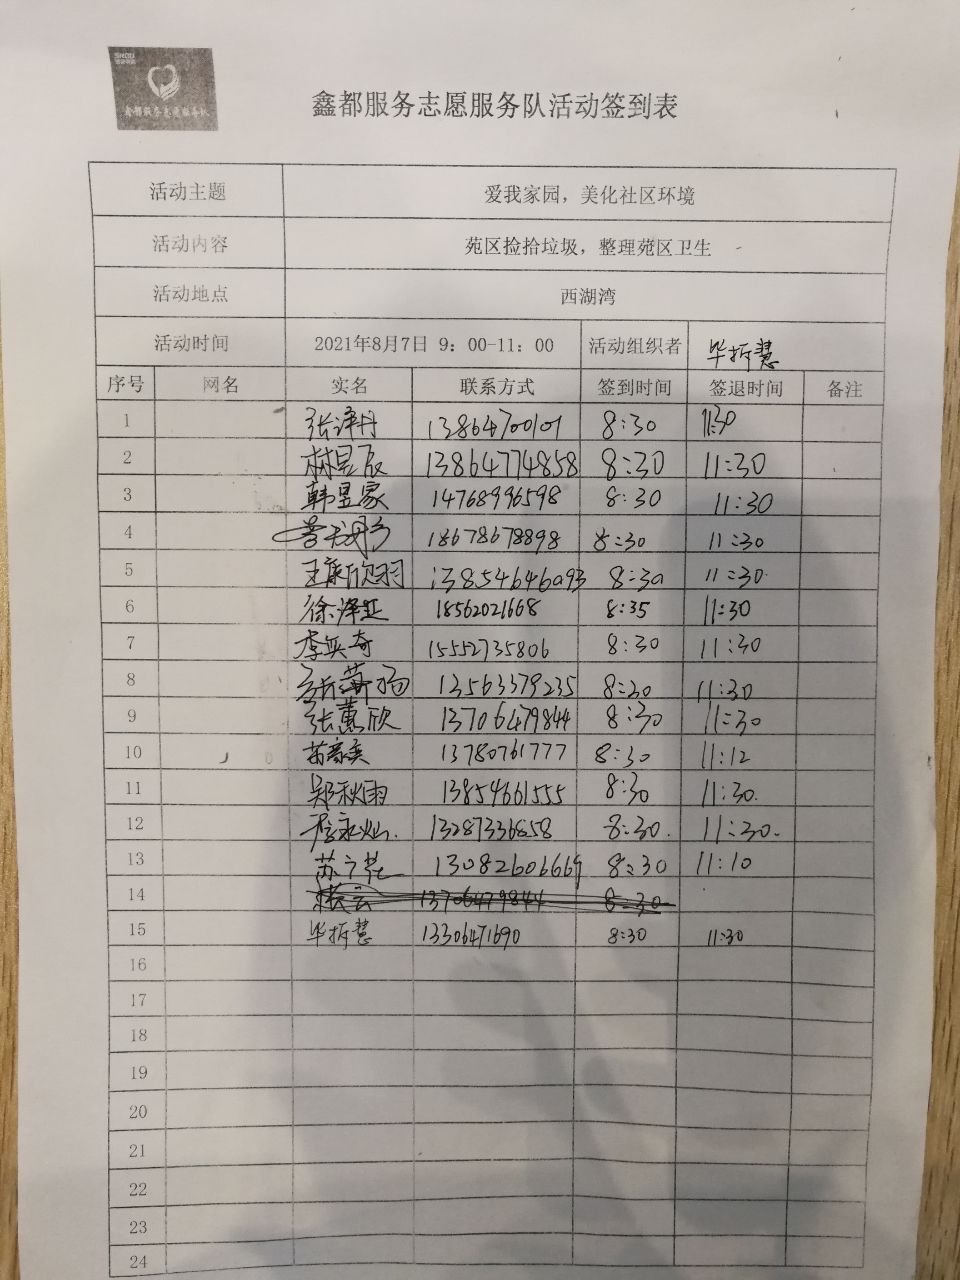 鑫都服务志愿服务队
鑫都服务志愿服务队活动签到表
活动主题 爱我家园，美化社区环境
活动内容 苑区捡拾垃圾，整理苑区卫生
活动地点 西湖湾
活动时间 2021年8月7日 9：00-11：00 活动组织者 毕折慧
序号 网名 实名 联系方式 签到时间 签退时间 备注
1 张译丹 13864700101 8:30 11:30
2 林昱辰 13864774858 8:30 11:30
3 韩昱家 14768996598 8:30 11:30
4 18678678898 8:30 11:30
5 王康欣羽 13854646093 8:30 11:30
6 徐泽正 18562021668 8:35 11:30
7 李奕奇 15552735806 8:30 11:30
8 13563379235 8:30 11:30
9 张蕙欣 13706479844 8:30 11:30
10 苗家奕 13780761777 8:30 11:12
11 郑秋雨 13854661555 8:30 11:30.
12 李永灿. 13287336858 8:30. 11:30.
13 苏广花 13082606669 8:30 11:10
14 13706479844 8:30
15 毕折慧 13306471690 8:30 11:30
16
17
18
19
20
21
22
23
24